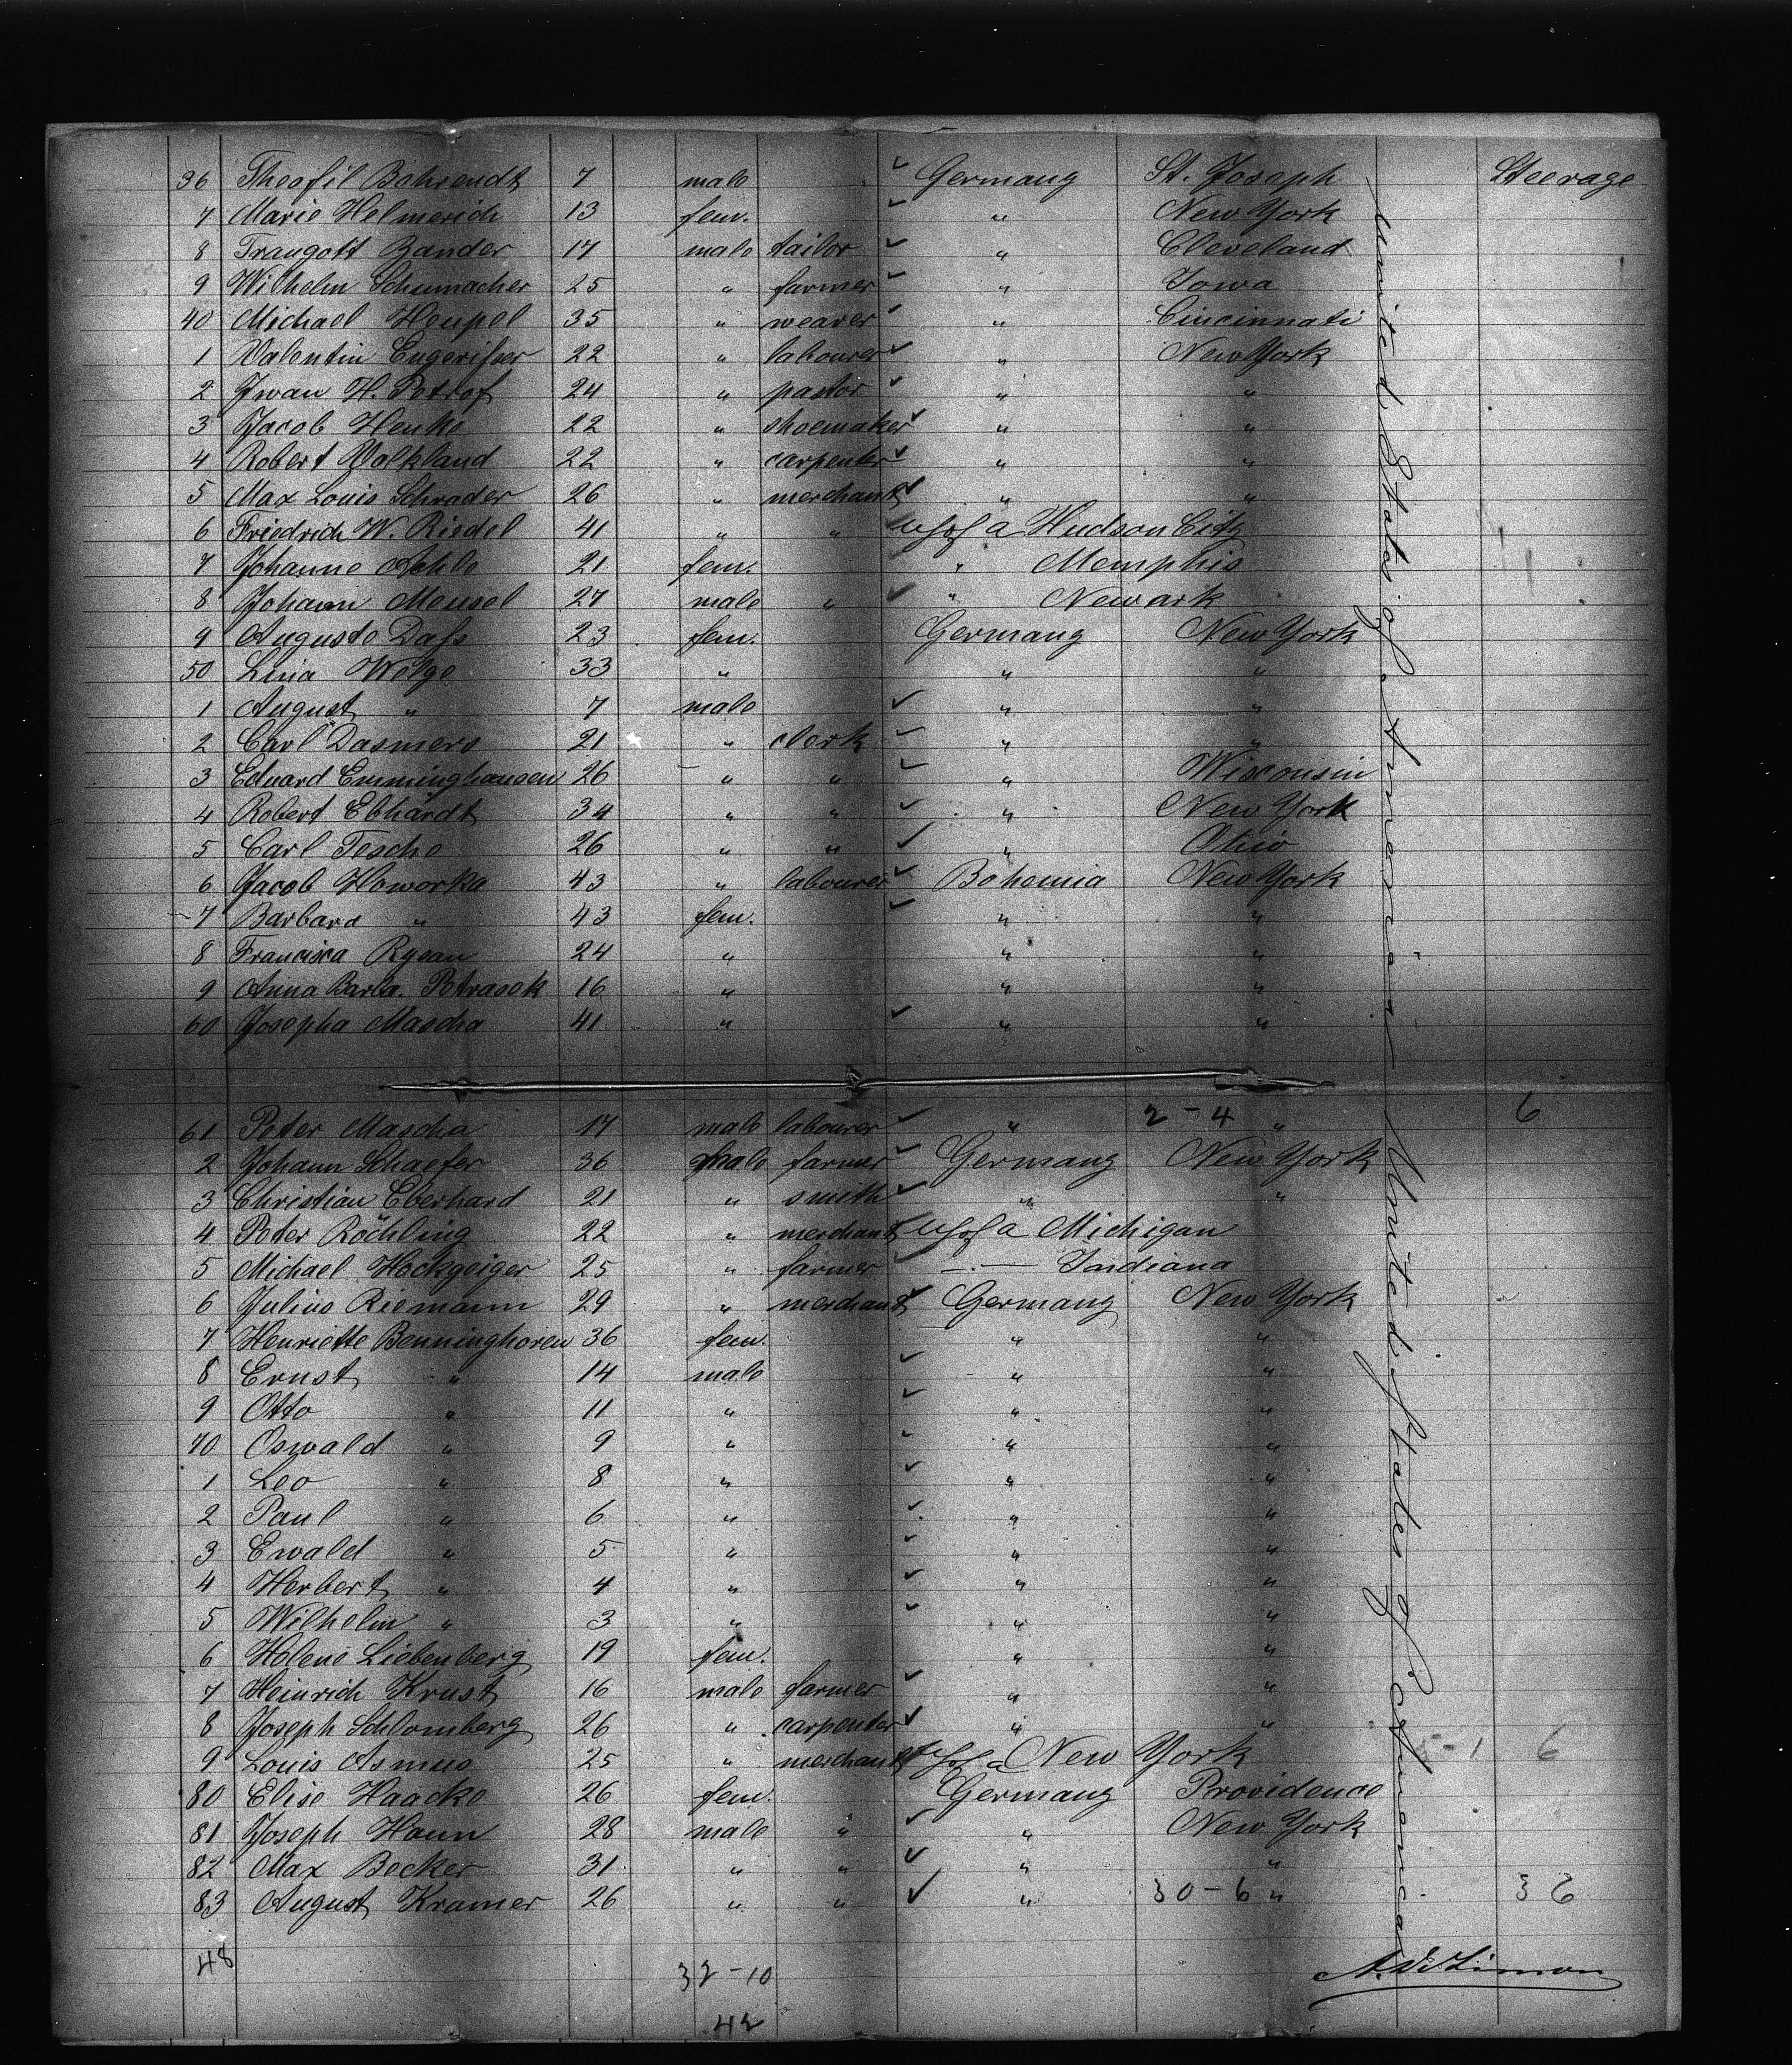 36 Theofil Bohrendt 7 male Germany St. Joseph Steerage
7 Marie Helmerich 13 fem. " New York
8 Traugott Zander 17 male tailor " Cleveland
9 Wilhelm Schumacher 25 " farmer " Iowa
40 Michael Heupel 35 " weaver " Cincinnati
1 Valentin 22 " labourer " New York
2 Iwan H. Petrof 24 " pastor " "
3 Jacob Henke 22 " shoemaker " "
4 Robert Volkland 22 " carpenter " "
5 Max Louis Schrader 26 " merchant " "
6 Friedrich W. Riedel 41 " " U S of a Hudson City
7 Johanne 21 fem. " Memphis
8 Johann Mensel 27 male " " Newark
9 Auguste Dass 23 fem. Germany New York
50 Lina Welge 33 " " "
1 August " 7 male " "
2 Carl Dasmers 21 " clerk " "
3 Eduard Emminghausen 26 " " " Wisconsin
4 Robert Ebhardt 34 " " " New York
5 Carl Tesche 26 " " " Ohio
6 Jacob Howorka 43 " labourer Bohemia New York
7 Barbara " 43 fem. " "
8 Francisca 24 " " "
9 Anna Barba. Petrasek 16 " " "
60 Josepha Mascha 41 " " "
61 Peter Mascha 17 male labourer " 2-4 " 6
2 Johann Schaefer 36 male farmer Germany New York
3 Christian Eberhard 21 " smith " "
4 Peter Röchling 22 " merchant U S of a Michigan
5 Michael Hockgeiger 25 " farmer —.— Indiana
6 Julius Riemann 29 " merchant Germany New York
7 Henriette Benninghoven 36 fem. " "
8 Ernst " 14 male " "
9 Otto " 11 " " "
70 Oswald " 9 " " "
1 Leo " 8 " " "
2 Paul " 6 " " "
3 Ewald " 5 " " "
4 Herbert " 4 " " "
5 Wilhelm " 3 " " "
6 Helene Liebenberg 19 fem. " "
7 Heinrich Krust 16 male farmer " "
8 Joseph Schlomberg 26 " carpenter " "
9 Louis Asmus 25 " merchant U S of a New York 5-1 6
80 Elise Haacke 26 fem. Germany Providence
81 Joseph Haun 28 male " " New York
82 Max Becker 31 " " " "
83 August Kramer 26 " " " 30-6 " 36
48
32-10
42
United States of America
United States of America